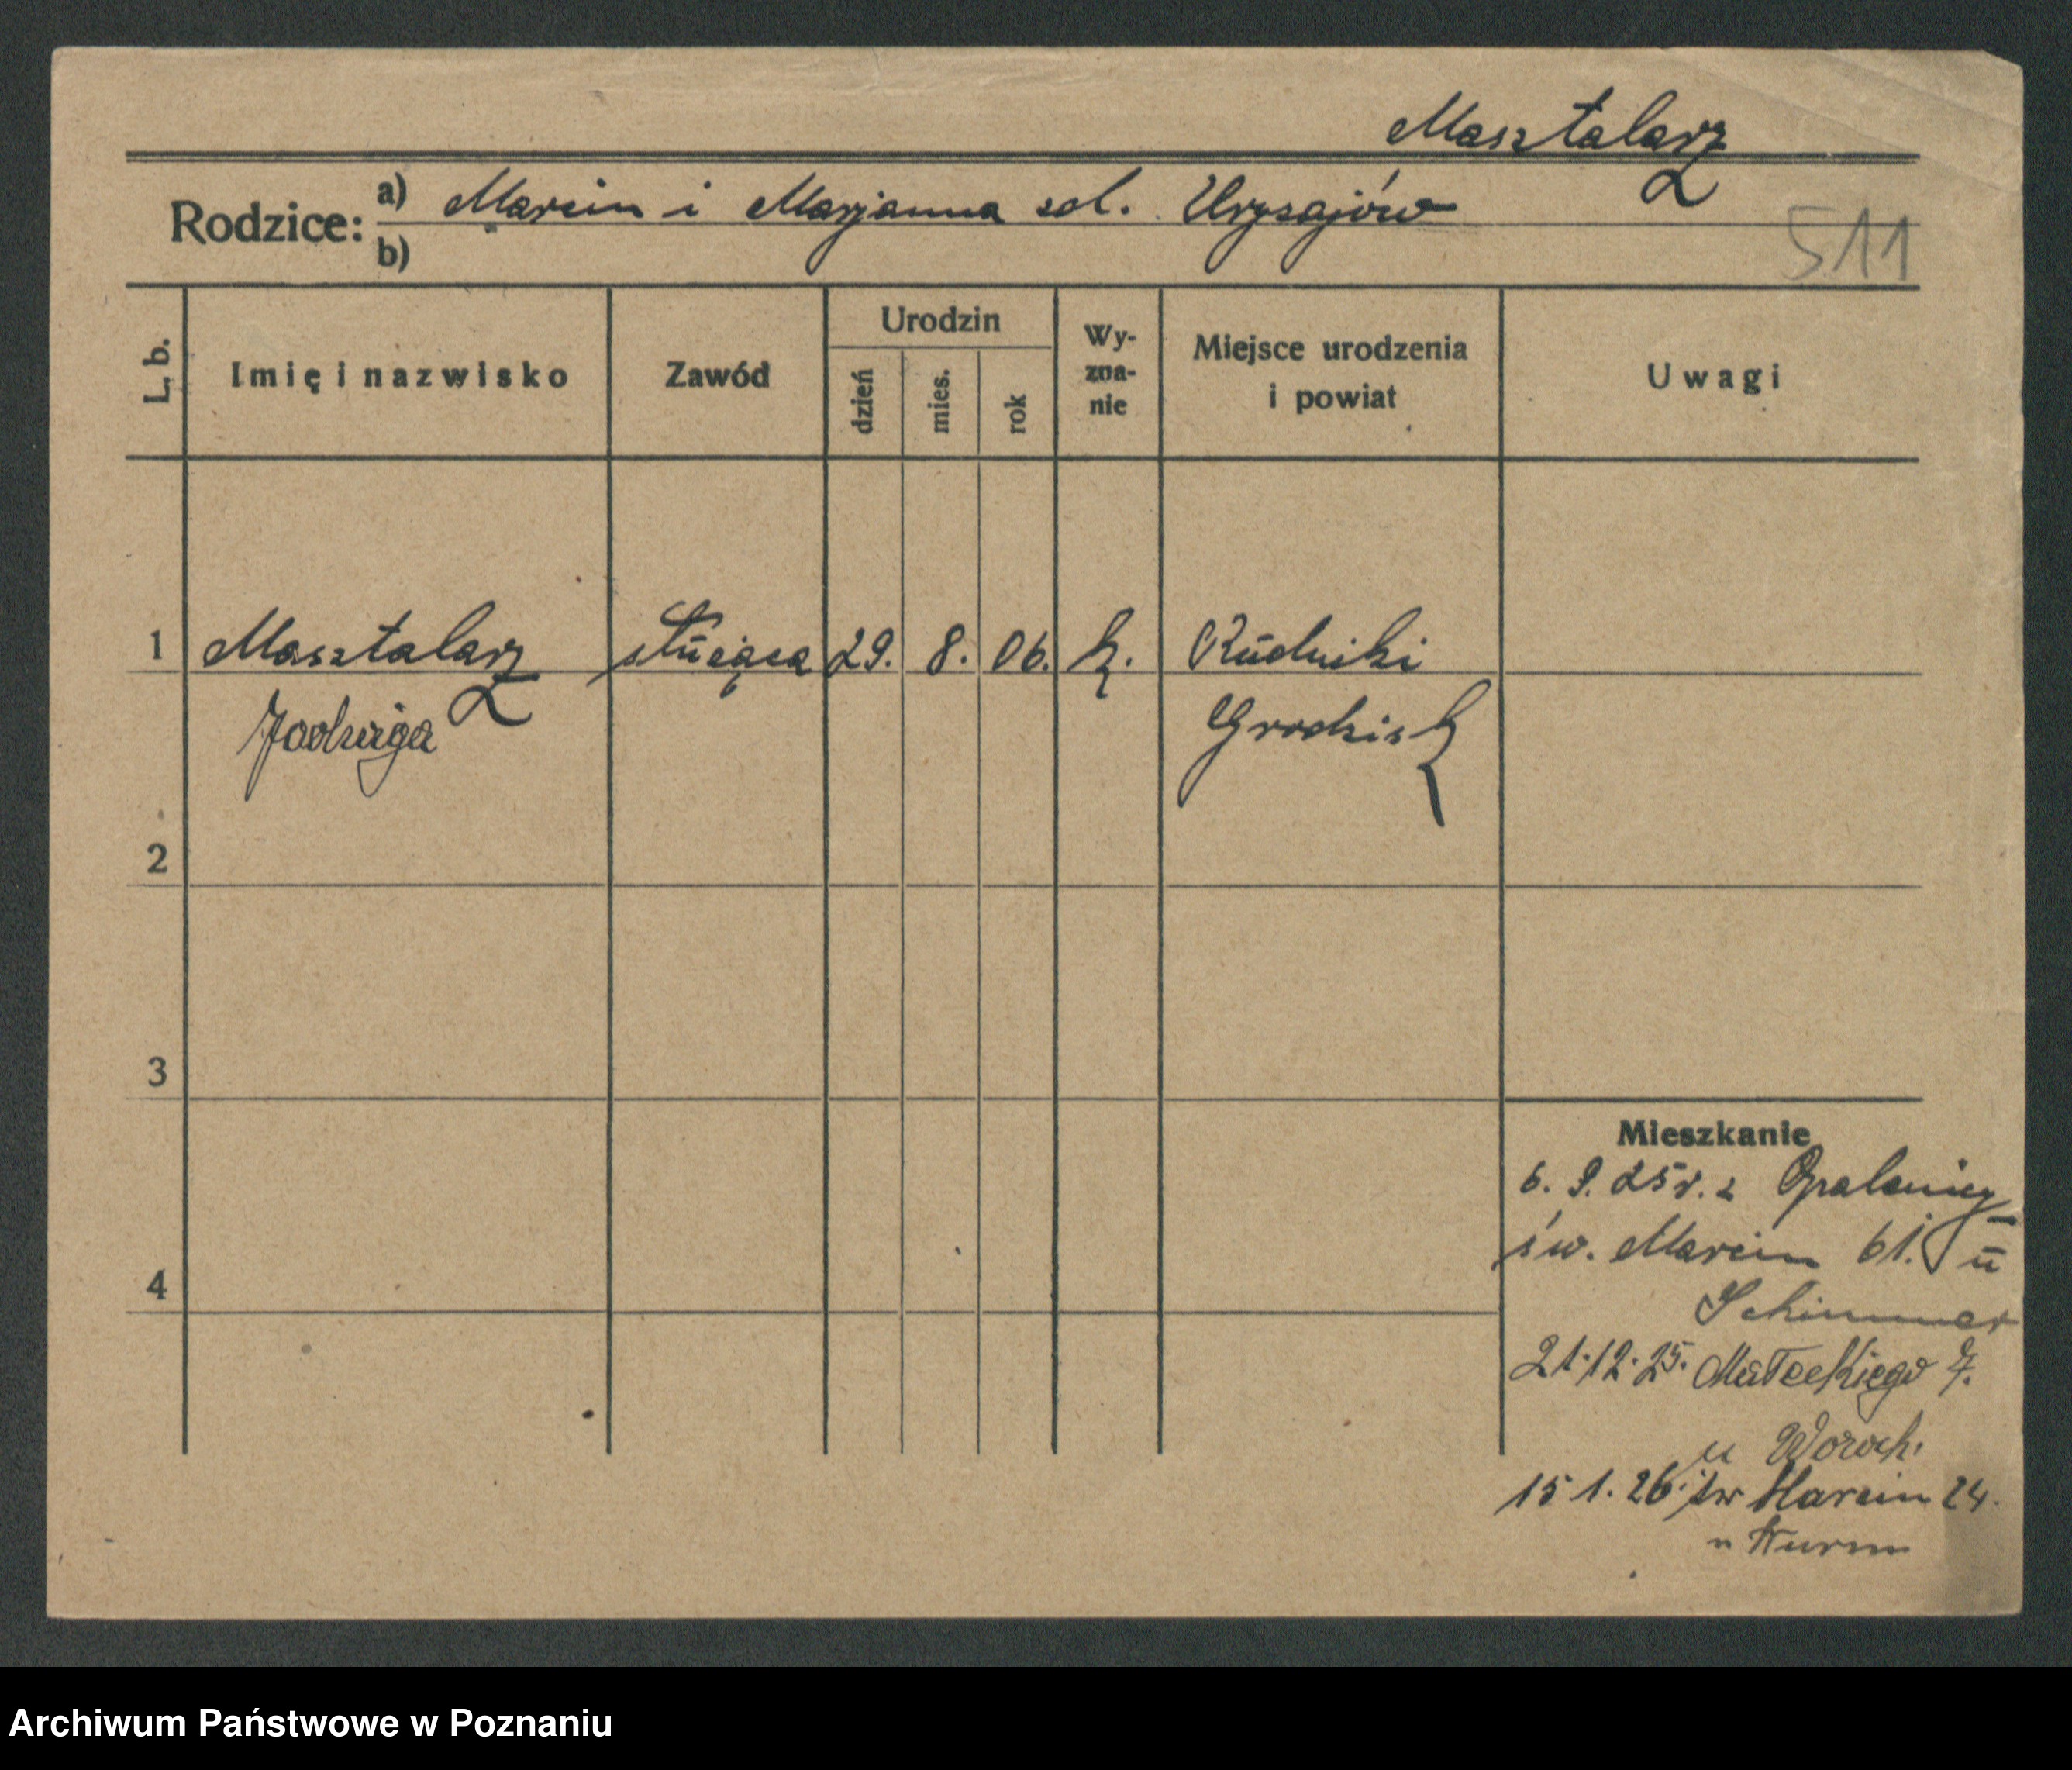 Masztalarz
Rodzice: a) Marcin i Marjanna sol.
b)
511
L. b.
Imię i nazwisko
Zawód
Urodzin
dzień
mies.
rok
Wy-
zna-
nie
Miejsce urodzenia
i powiat
Uwagi
1 Masztalarz służąca 29. 8. 06. k. Rudniki
Jadwiga Grodzisk
2
3
4
Mieszkanie
6. 9. 25 r. z Opalenicy
św. Marcin 61. II
u
Schimmer
21.12.25. Małeckiego 7.
u Woroch.
15 1. 26. św Marcin 24.
u Wurm
Archiwum Państwowe w Poznaniu